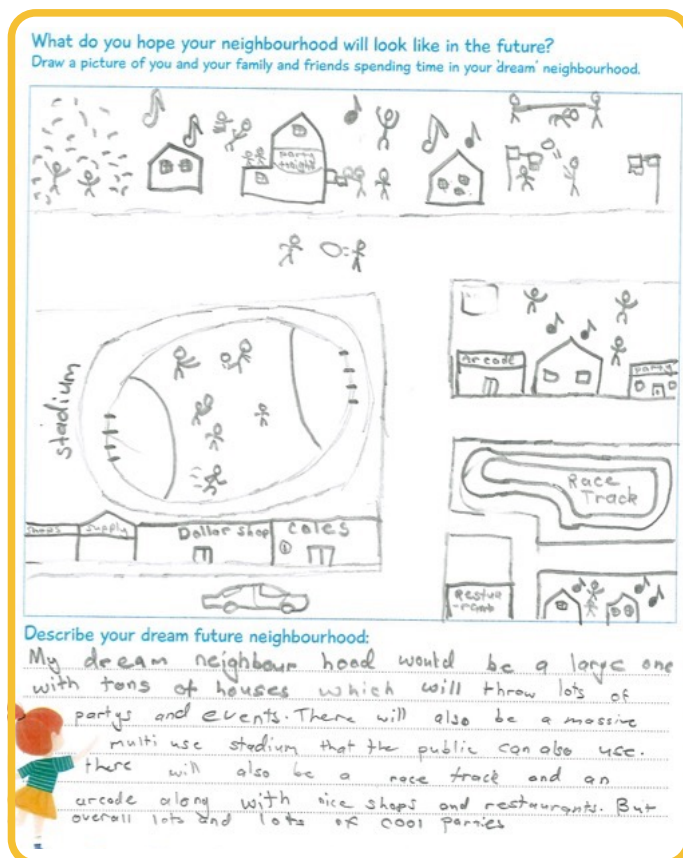 What do you hope your neighbourhood will look like in the future?
Draw a picture of you and your family and friends spending time in your 'dream' neighbourhood.
party
tnight
stadium
Arcade
party
Race
Track
supply
Dollar shop
coles
Restua
-rant
Describe your dream future neighbourhood:
My dream neighbour hood would be a large one
with tons of houses which will throw lots of
partys and events. There will also be a massive
multi use stadium that the public can also use.
there will also be a race track and an
arcade along with nice shops and restaurants. But
overall lots and lots of cool parties